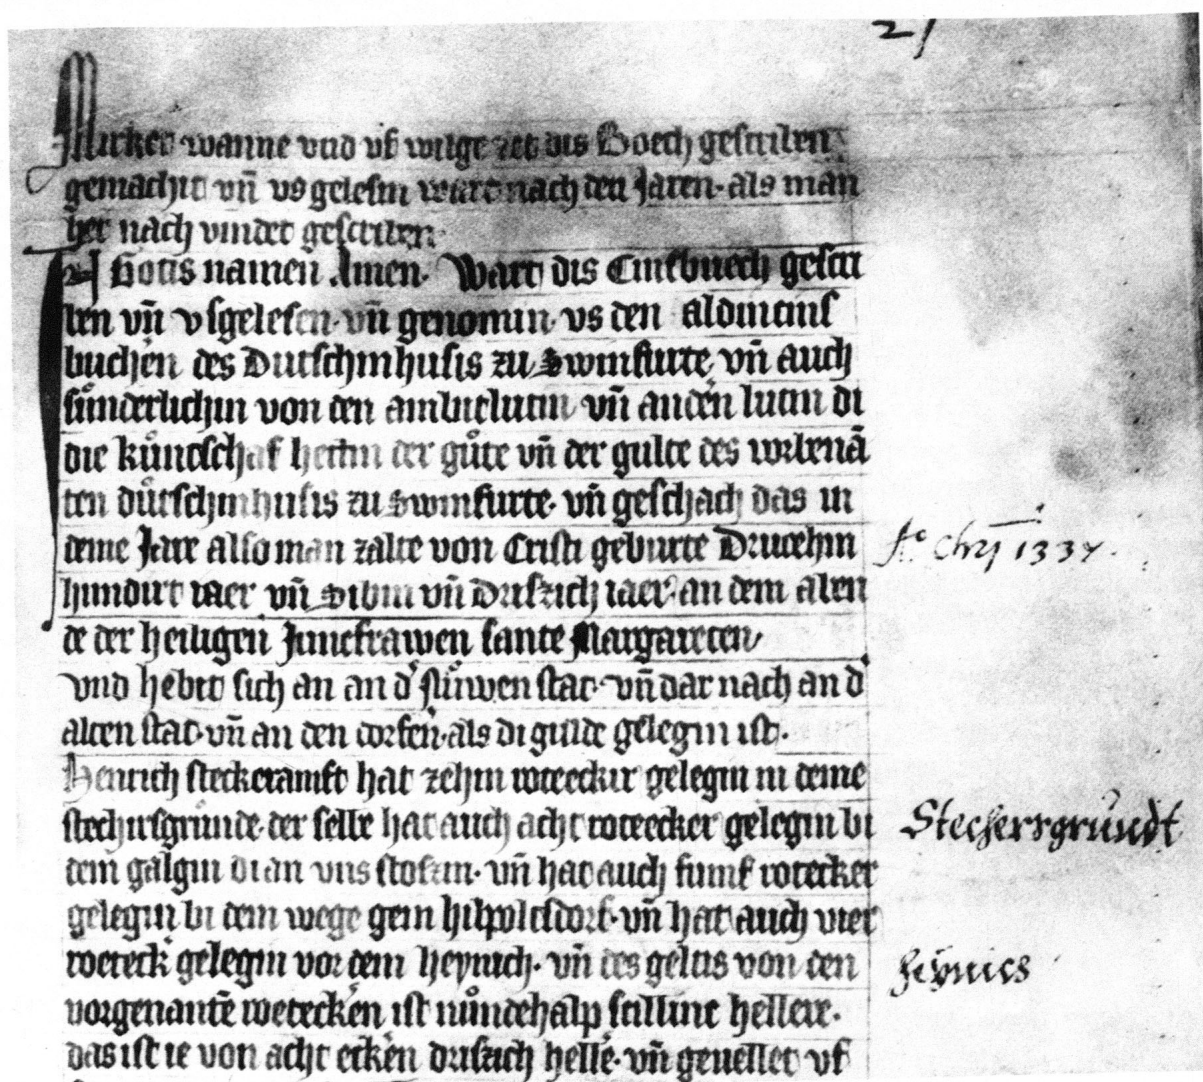 21
Mirket wanne vnd vf wilge zet dis Boech gescriben
gemachit vn̄ vs gelesin wart nach den Jaren· als man
her nach vindet gescriben·
In Gotis namen Amen· Wart dis Cinsbuech gescri
ben vn̄ vsgelesen· vn̄ genomin· vs den aldin cins
buchen des Dutschinhusis zu Swinfurte vn̄ auch
sůnderlichin von den ambtlutin vn̄ anden lutin di
die kůntschaf hettin der gůte vn̄ der gulte des vorbenā
ten důtschinhusis zu Swinfurte· vn̄ geschach das in
deme Jare also man zalte von Cristi geburte Drucehin
hundirt iaer vn̄ Sibin vn̄ Driszich iaer· an dem aben
de der heiligen Juncfrawen sante Margareten
A.o Chrj 1337.
vnd hebit sich an an d' Nůwenstat· vn̄ dar nach an d'
alten stat· vn̄ an den dorfen· als di gulde gelegin ist·
Henrich steckeramft hat zehin roteeckir gelegin in deme
stechirsgrunde· der selbe hat auch acht roteecker gelegin bi
Stecherrsgrůndt
dem galgin di an vns stoszin· vn̄ hat auch fumf rotecker
gelegin bi dem wege gein hilpoltsdorf· vn̄ hat auch vier
roeteck' gelegin vor dem heynich· vn̄ des geltis von den
heynics
vorgenantē wetecken ist nůndehalp scillinc hellere·
das ist ie von acht ecken driszich helle· vn̄ geuellet vf